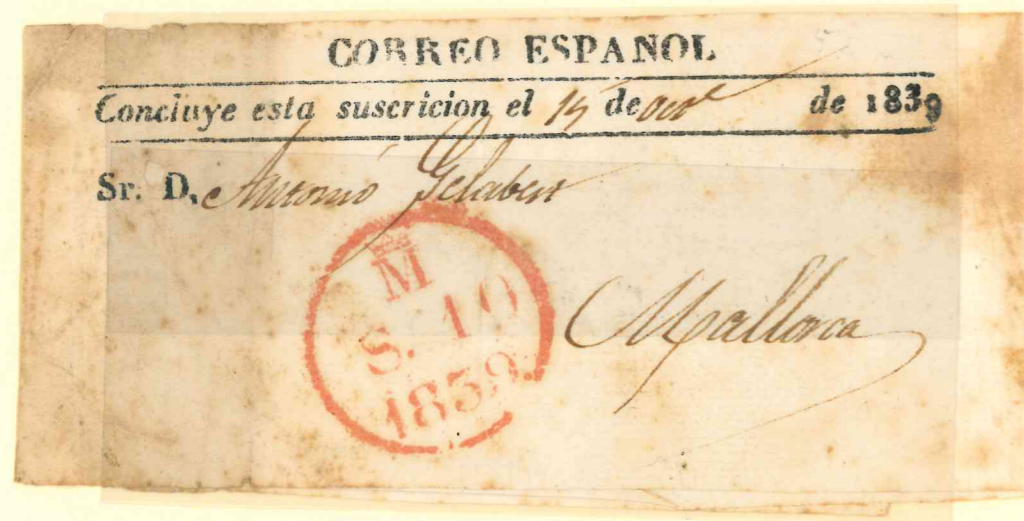 CORREO ESPAÑOL
Concluye esta suscricion el 15 de Octe de 1839
Sr. D. Antonio Gelabert
M
S. 10
1839.
Mallorca